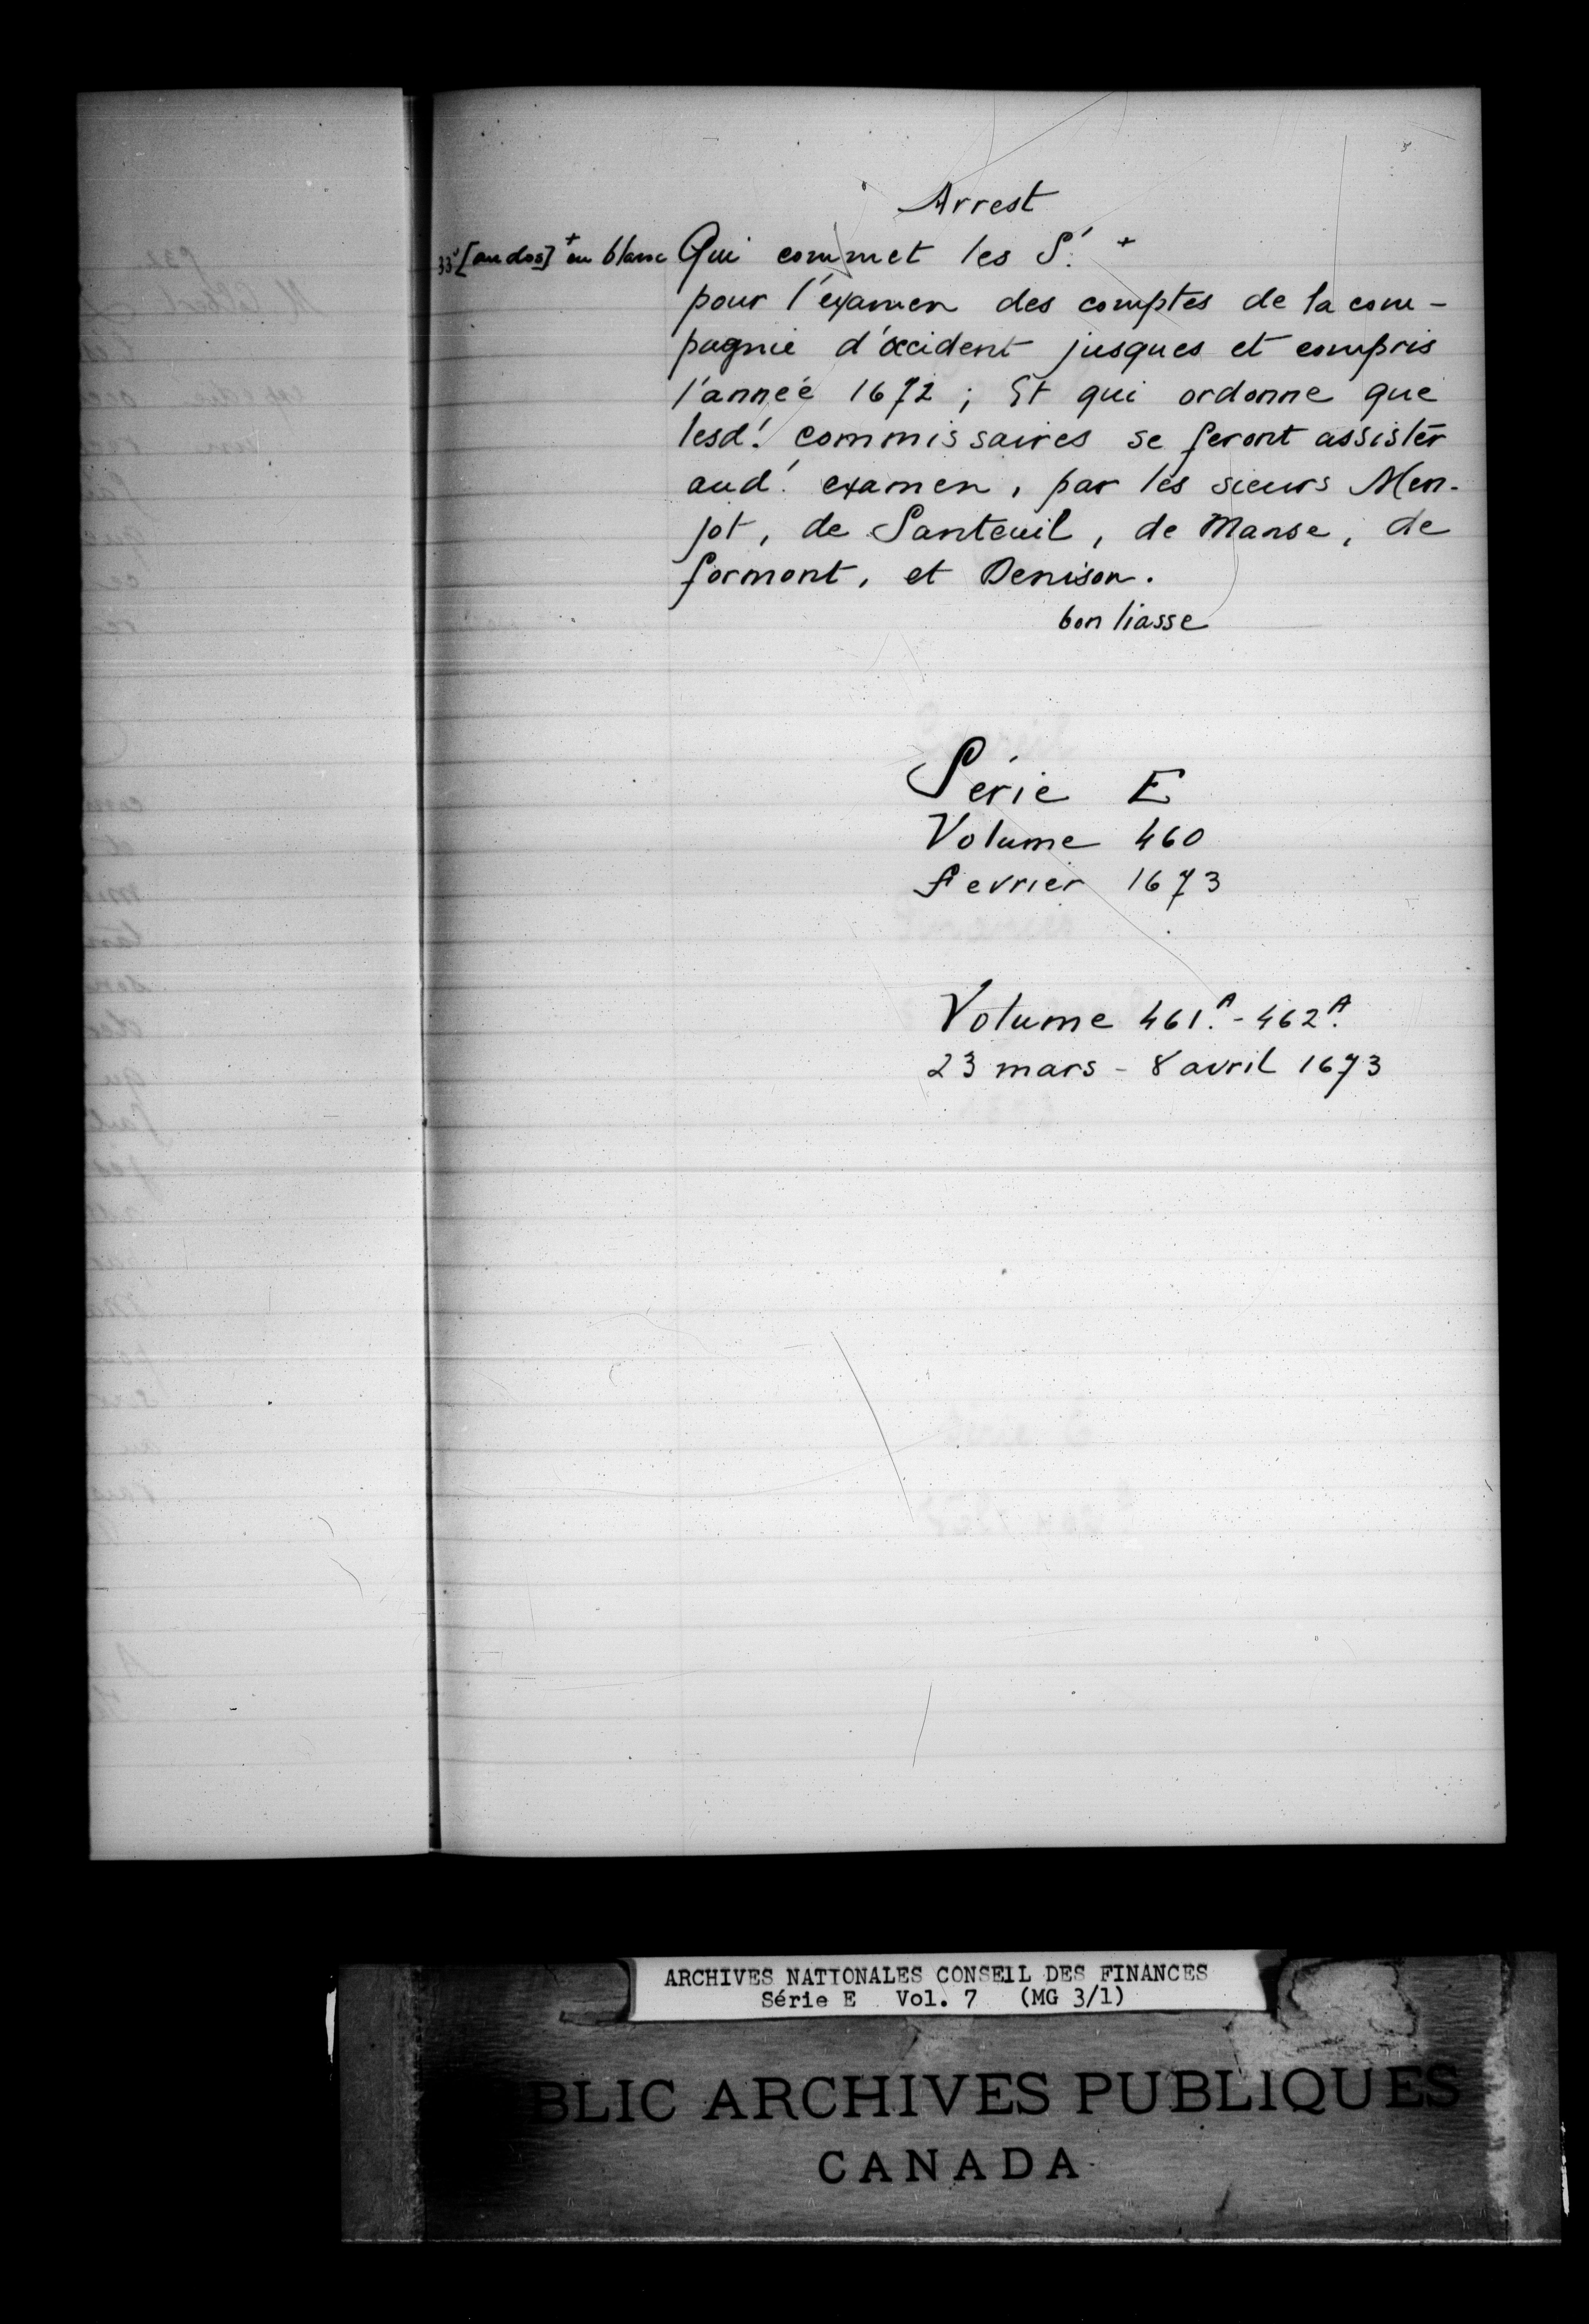 Arrest
33v [au dos] + en blanc Qui commet les S.rs +
pour l'examen des comptes de la com-
pagnie d'occident jusques et compris
l'année 1672 ; Et qui ordonne que
lesd. commissaires se feront assister
aud. examen, par les sieurs Men-
jot, de Santeuil, de Manse, de
formont, et Denison.
bon liasse
Série E
Volume 460
fevrier 1673
Volume 461.A - 462A.
23 mars - 8 avril 1673
ARCHIVES NATIONALES CONSEIL DES FINANCES
Série E Vol. 7 (MG 3/1)
BLIC ARCHIVES PUBLIQUES
CANADA